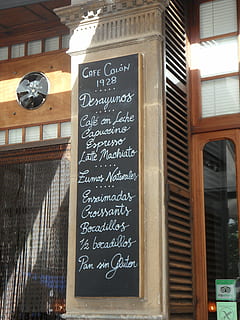 CAFE COLÓN
1928
Desayunos
Café con Leche
Capuccino
Espresso
Latte Machiato
Zumos Naturales
Ensaimadas
Croissants
Bocadillos
½ bocadillos
Pan sin Glúten